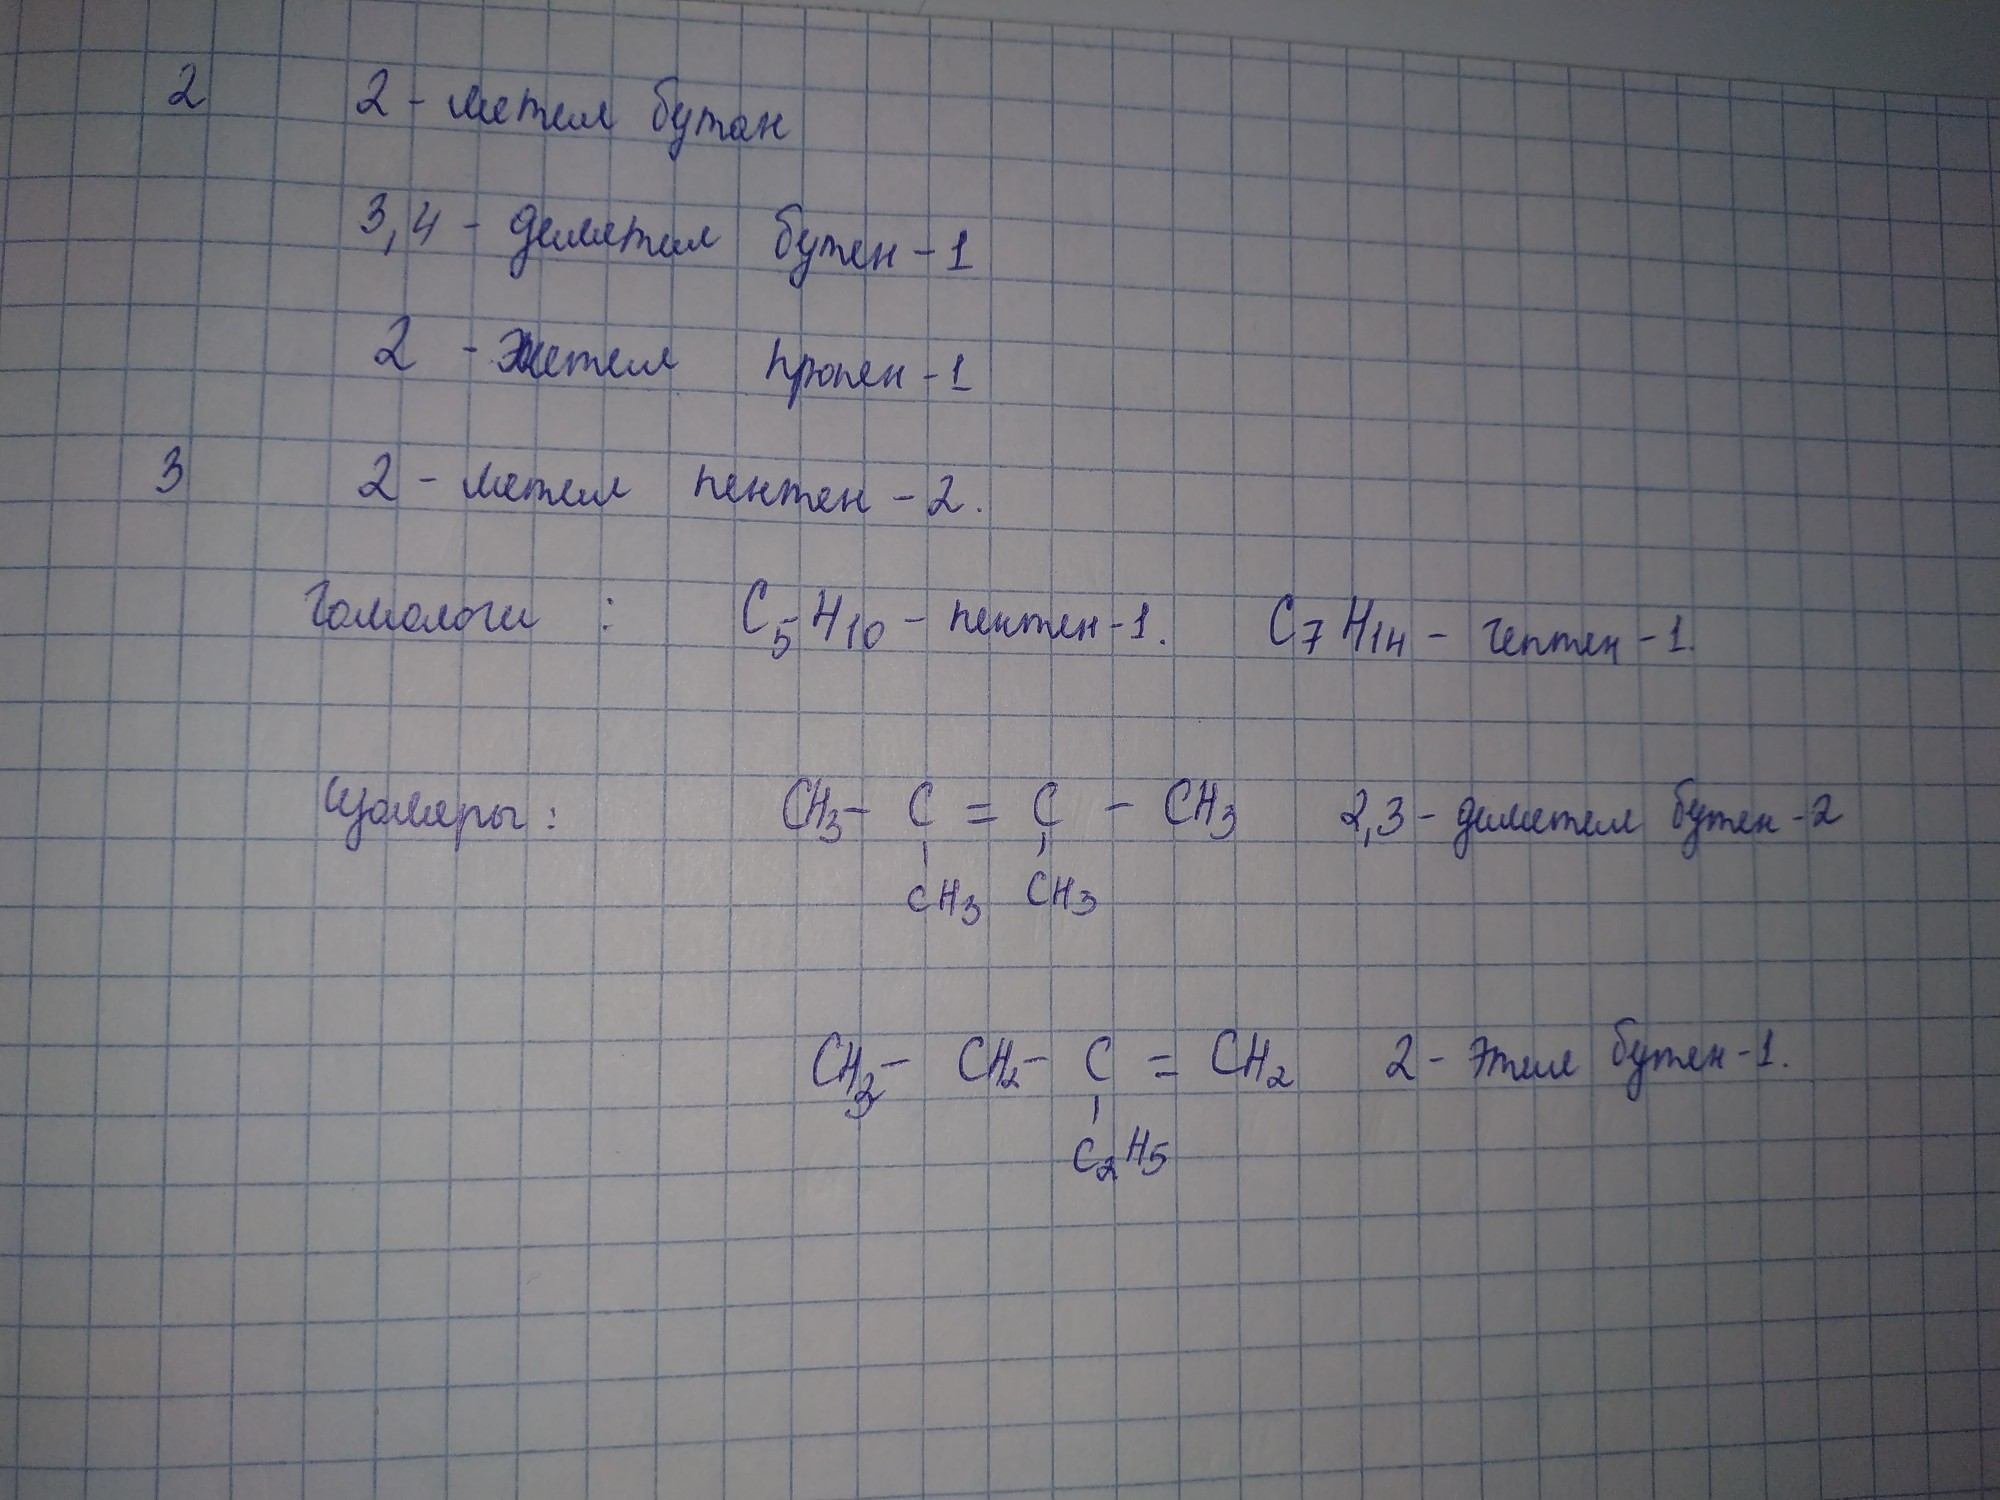 2 2 - метил бутан
3,4 - диметил бутен - 1
2 - метил пропен - 1
3 2 - метил пентен - 2.
Гомологи : C5H10 - пентен-1. C7H14 - гептен-1.
Изомеры: CH3- C = C - CH3 2,3 - диметил бутен-2
CH3 CH3
CH3- CH2- C = CH2 2- Этил бутен-1.
C2H5